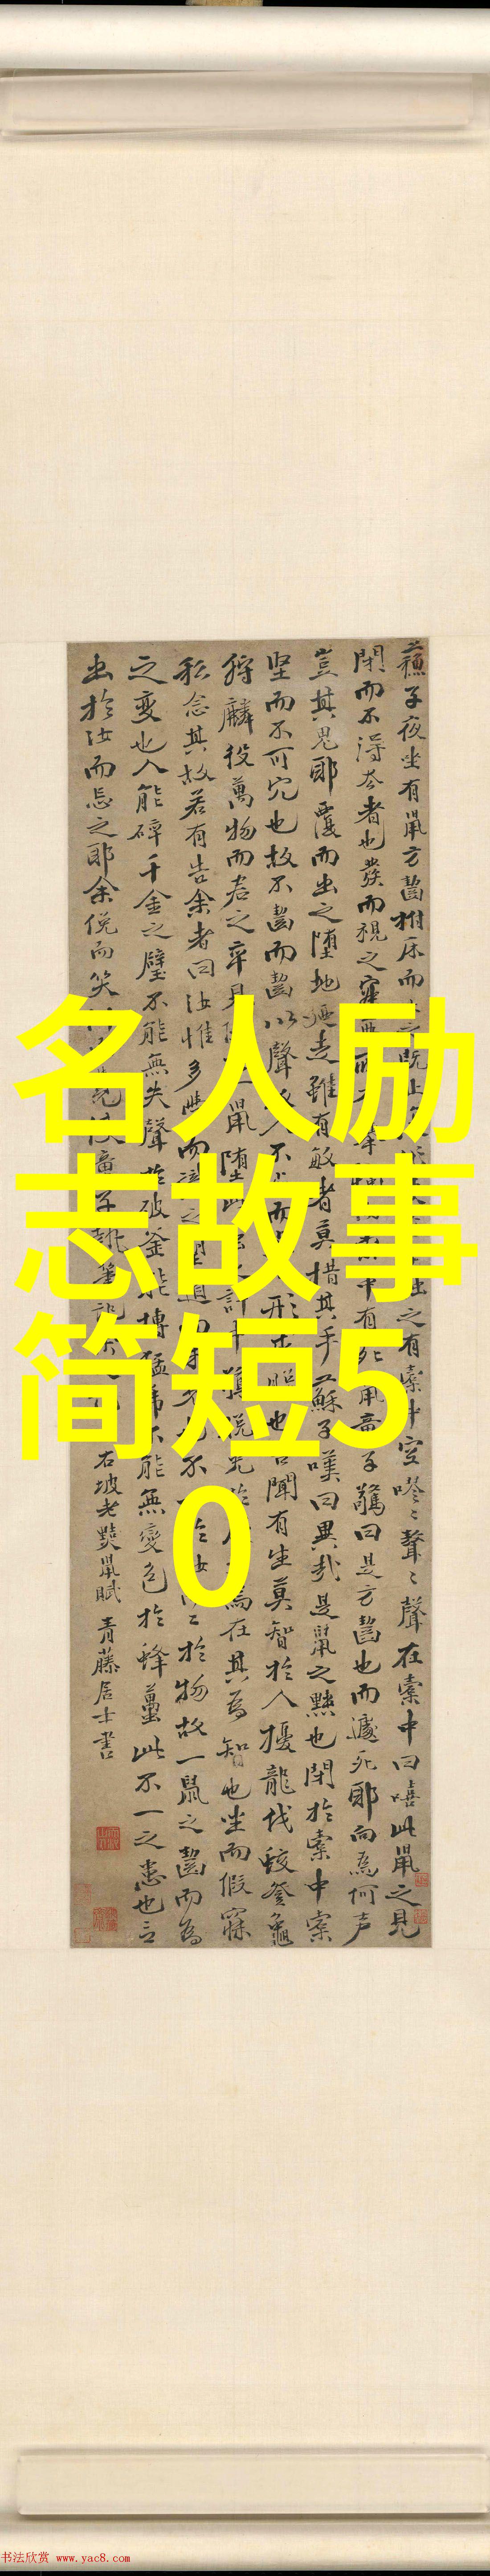 蘇子夜坐有鼠方齧拊床而止之既止之有橐中空嘐〻聲〻在橐中曰嘻此鼠之見
閉而不得去者也發而視之中有死鼠童子驚曰是方齧也而遽死耶向為何声
豈其鬼耶覆而出之墮地迺走雖有敏者莫措其手蘇子嘆曰異哉是鼠之黠也閉於橐中橐
堅而不可穴也故不齧而齧以聲人不而形求也聞有生莫智於人擾龍伐蛟登龜
狩麟役萬物而君之卒見一鼠墮此計中焉在其為智也坐而假寐
私念其故若有告余者曰汝惟多學而道不一於汝二於物故一鼠之齧而為
之變也人能碎千金之璧不能無失聲於破釜能搏猛虎不能無變色於蜂蠆此不一之患也言
出於汝而忘之耶余俛而笑使童子執筆記
右坡老黠鼠賦 青藤居士書
名人励
志故事
简短5
0
书法欣赏 www.yac8.com